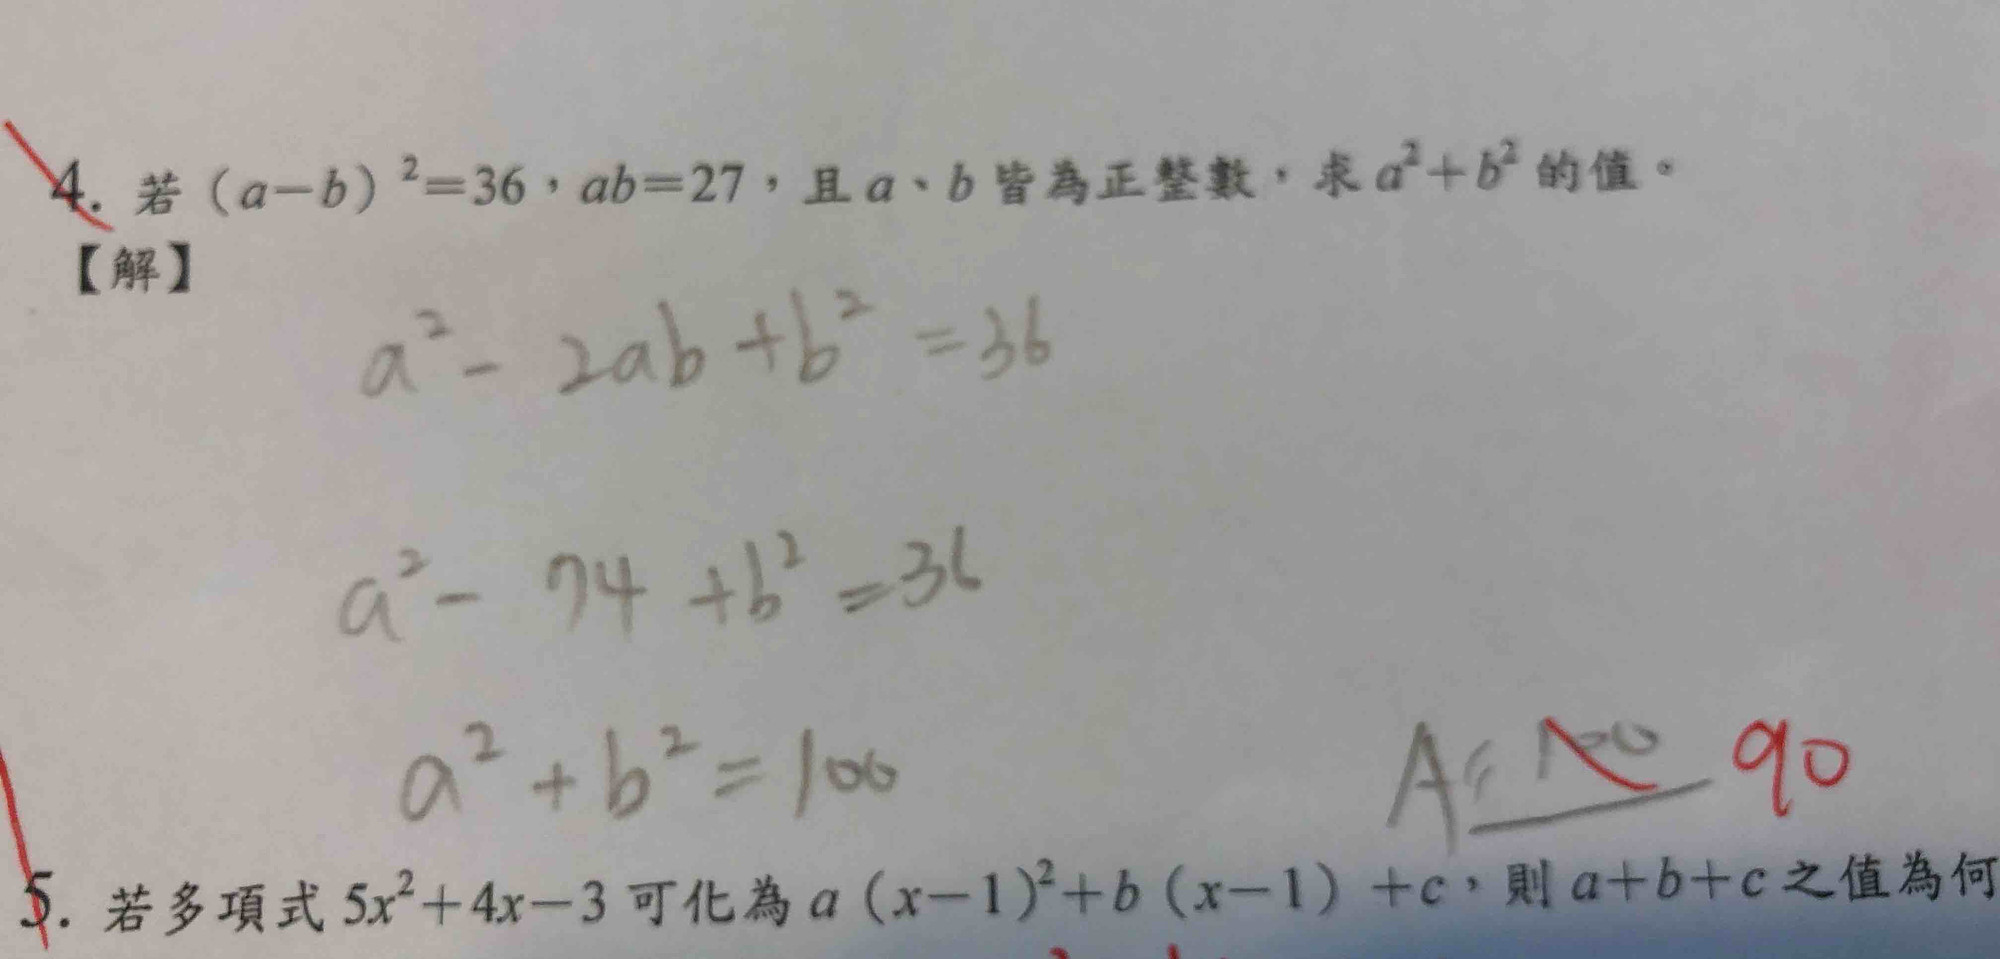 4. 若（a－b）²＝36，ab＝27，且 a、b 皆為正整數，求 a²＋b² 的值。
【解】
a² - 2ab + b² = 36
a² - 74 + b² = 36
a² + b² = 100
A: 100 90
5. 若多項式 5x²＋4x－3 可化為 a（x－1)²＋b（x－1）＋c，則 a＋b＋c 之值為何